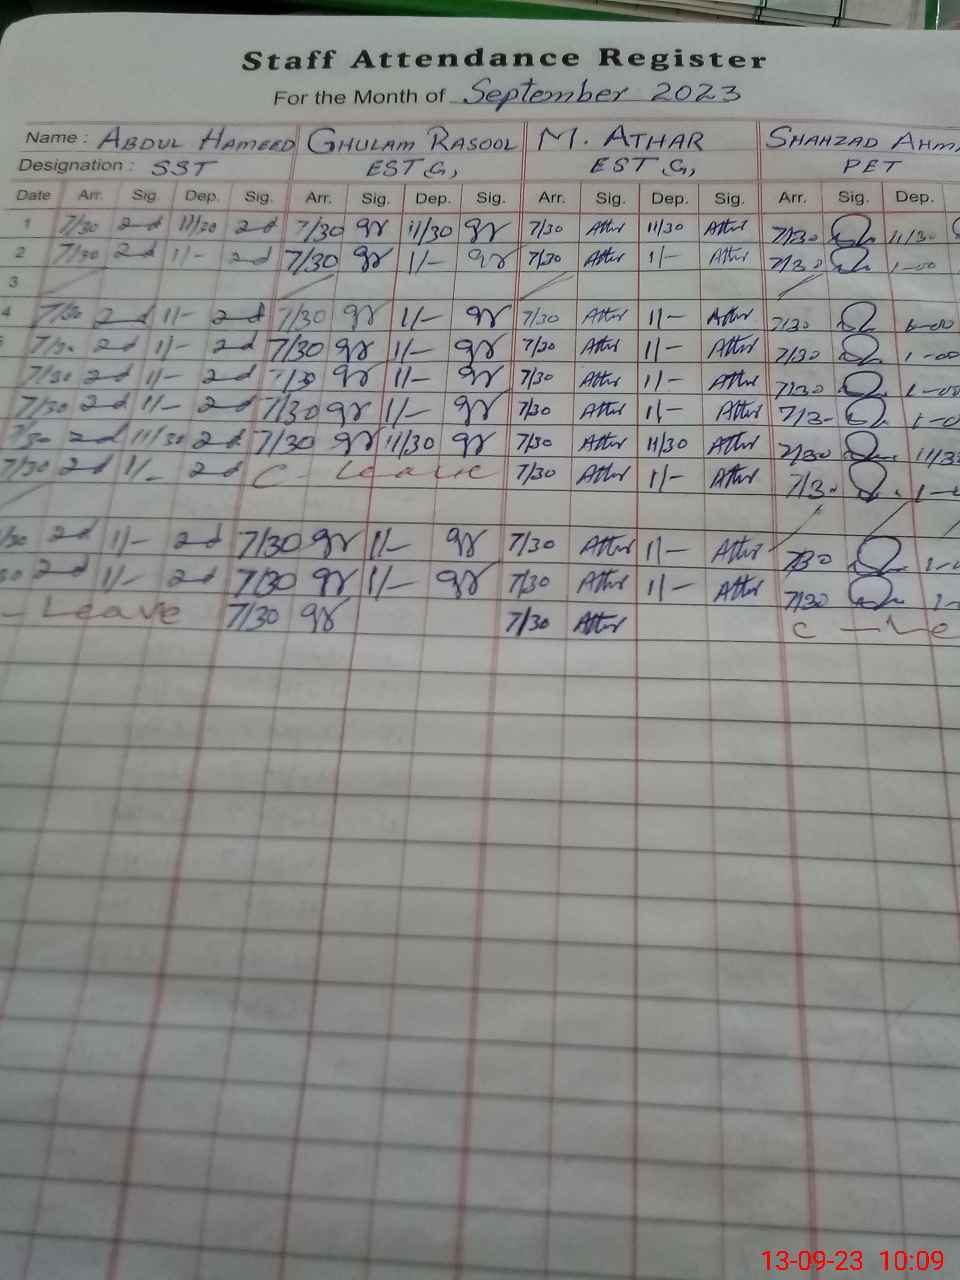 Staff Attendance Register
For the Month of September 2023
Name : ABDUL HAMEED GHULAM RASOOL M. ATHAR SHAHZAD AHM
Designation : SST EST G, EST G, PET
Date Arr. Sig. Dep. Sig. Arr. Sig. Dep. Sig. Arr. Sig. Dep. Sig. Arr. Sig. Dep.
1 7/30 11/30 7/30 11/30 7/30 Ather 11/30 Ather 7/30 11/30
2 7/30 1/- 7/30 1/- 7/30 Ather 1/- Ather 7/30 1-00
3
4 7/30 1/- 7/30 1/- 7/30 Ather 1/- Ather 7/30
7/30 1/- 7/30 1/- 7/30 Ather 1/- Ather 7/30 1-00
7/30 1/- 7/30 1/- 7/30 Ather 1/- Ather 7/30 1-00
7/30 1/- 7/30 1/- 7/30 Ather 1/- Ather 7/3- 1-0
7/30 11/30 7/30 11/30 7/30 Ather 11/30 Ather 7/30 11/3
7/30 1/- C - Leave 7/30 Ather 1/- Ather 7/3-
/30 1/- 7/30 1/- 7/30 Ather 1/- Ather 7/30
30 1/- 7/30 1/- 7/30 Ather 1/- Ather 7/30
- Leave 7/30 7/30 Ather C - Le
13-09-23 10:09